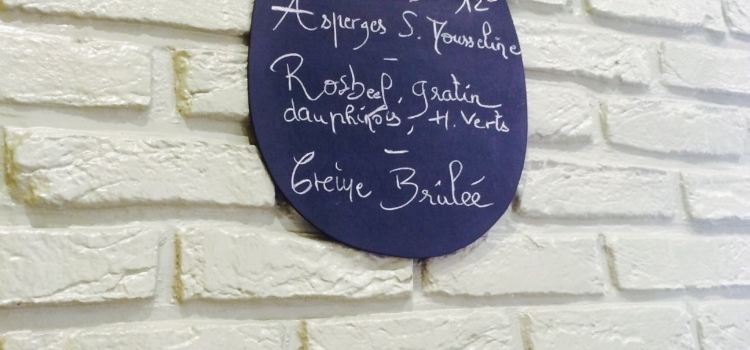 12
Asperges S. Mousseline
Rosbeef, gratin
dauphinois, H. Verts
Crème Brûlée